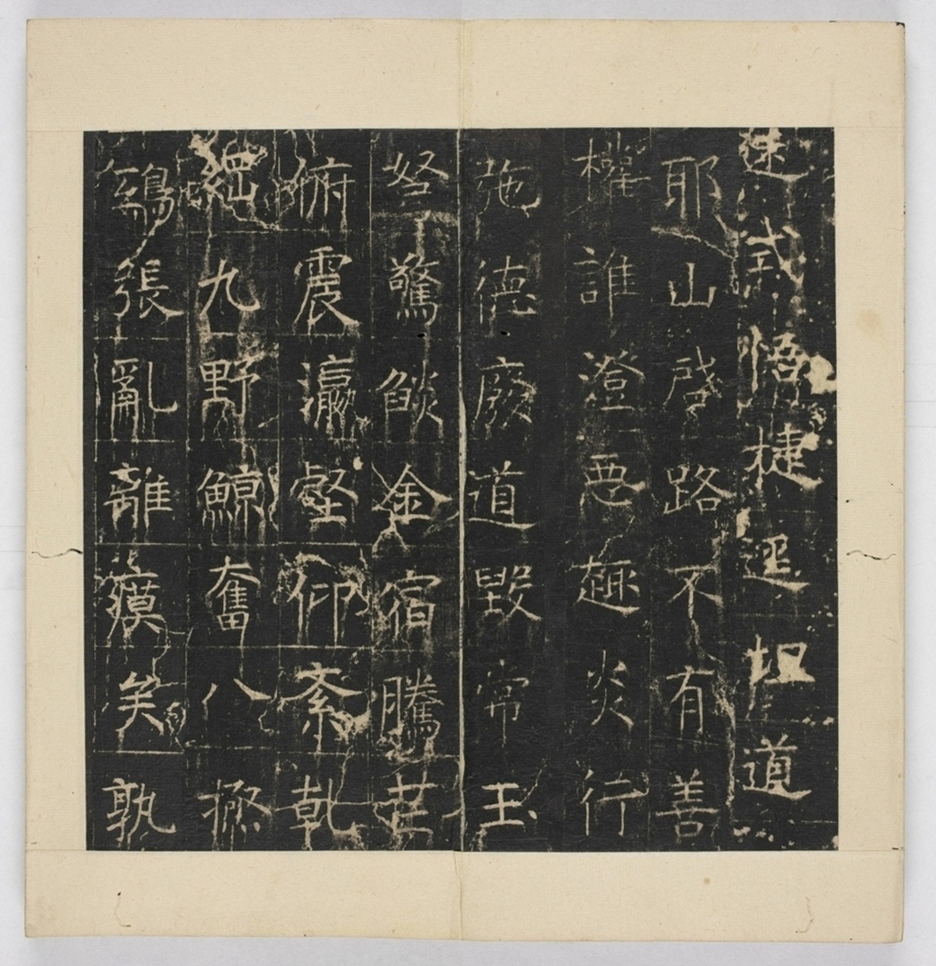 迷式悟捷逕坦道
耶山啓路不有善
權誰澄惡趣炎行
施德廢道毀常玉
弩驚燄金宿騰芒
俯震瀛壑仰紊乾
綱九野鯨奮八極
鴟張亂離瘼矣孰